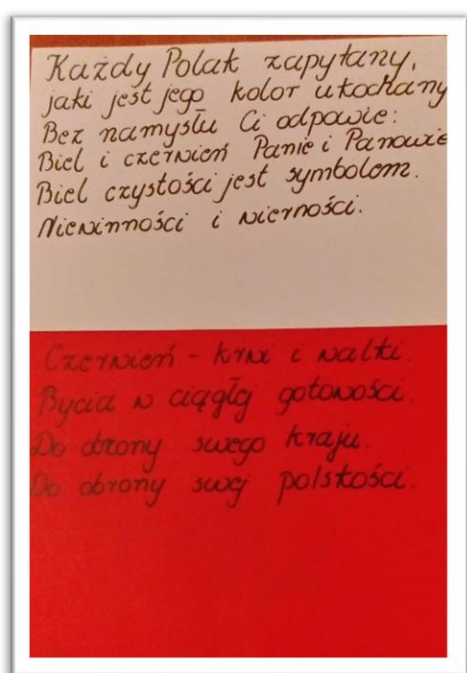 Każdy Polak zapytany,
jaki jest jego kolor ukochany
Bez namysłu Ci odpowie:
Biel i czerwień Panie i Panowie
Biel czystości jest symbolem.
Niewinności i wierności.
Czerwień - krwi i walki.
Bycia w ciągłej gotowości.
Do obrony swego kraju.
Do obrony swej polskości.